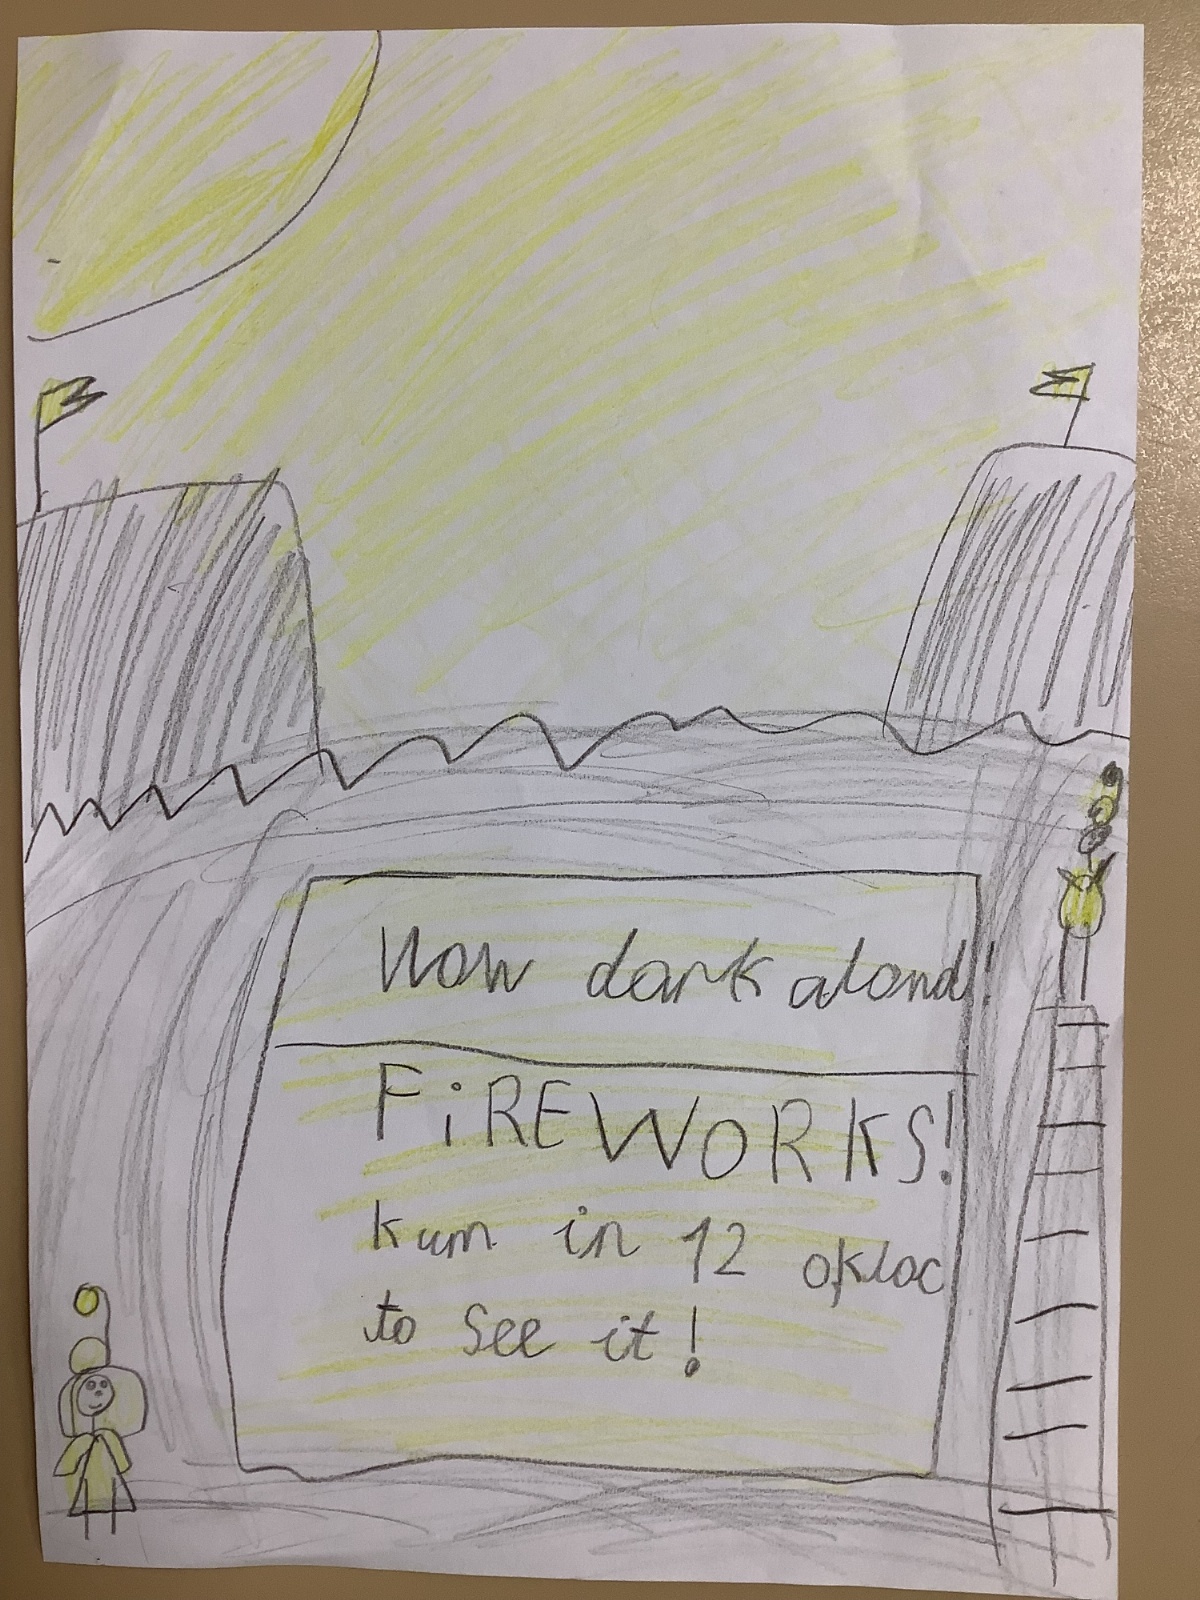 Now dark alond!
FiREWORKS!
kum in 12 okloc
to see it!